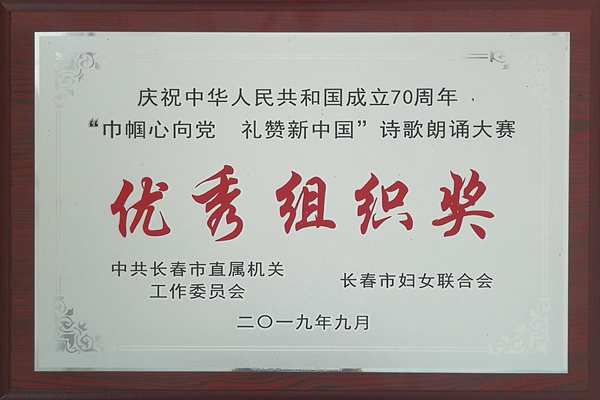 庆祝中华人民共和国成立70周年
“巾帼心向党　礼赞新中国”诗歌朗诵大赛
优秀组织奖
中共长春市直属机关
工作委员会
长春市妇女联合会
二〇一九年九月